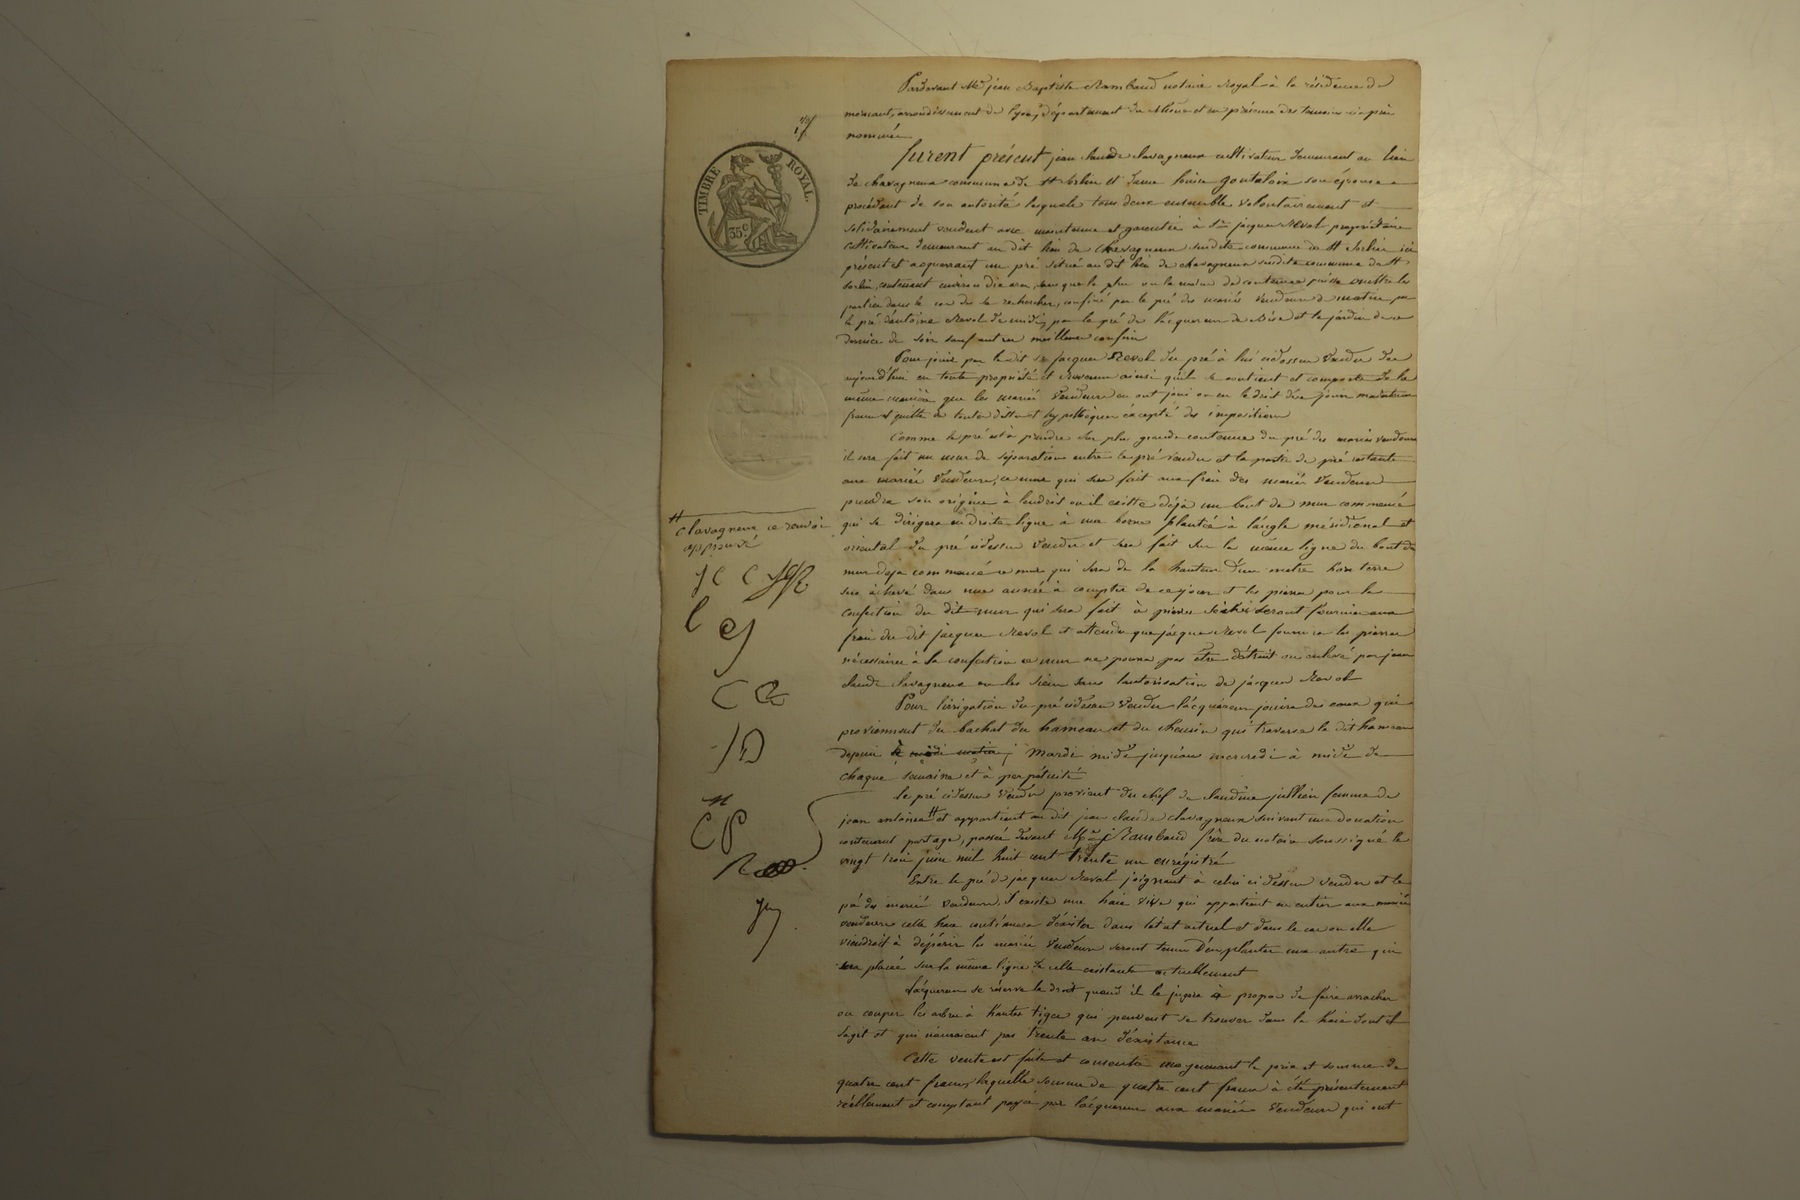 Pardevant Me jean Baptiste Rambaud notaire Royal à la résidence de
mornant, arrondissement de lyon, département du Rhône et en présence des temoins ci après
nommés
furent présent jean claude clavagneux cultivateur demeurant au lieu
de chavagneux commune de St Sorlin et dame louise goutaloir son épouse
procédant de son autorité lesquels tous deux ensemble volontairement et
solidairement vendent avec maintenue et garentie à Sr jacques Revol propriétaire
cultivateur demeurant au dit lieu de chavagneux susdite commune de St Sorlin ici
présent et acquerrant un pré situé au dit lieu de chavagneux susdite commune de St
Sorlin, contenant environ dix ares, sans que le plus ou le moins de contenue puisse
parties dans le cas de se rechercher, confiné par le pré des mariés vendeurs de matin par
le pré d'antoine Revol de midi, par le pré de l'acquereur de Bise et le jardin de ce
dernier de soir sauf autres meilleurs confins
Pour jouir par le dit Sr jacques Revol du pré à lui cidessus vendu dès
aujourd'hui en toute propriété et revenu ainsi qu'il se contient et comporte de la
même manière que les mariés vendeurs en ont joui ou eu le droit d'en jouir maintenu
franc et quitte de toutes dettes et hypothèques excepté des impositions
Comme le pré est à prendre sur plus grande contenue du pré des mariés vendeurs
il sera fait un mur de séparation entre le pré vendu et la partie de pré restante
aux mariés vendeurs, ce mur qui sera fait aux frais des mariés vendeurs
prendra son origine à l'endroit où il existe déjà un bout de mur commencé
qui se dirigera en droite ligne à une borne plantée à l'angle méridional et
oriental du pré cidessus vendu et sera fait sur la même ligne du bout de
mur deja commencé ce mur qui sera de la hauteur d'un metre hors terre
sera achevé dans une année à compter de ce jour et les pierres pour la
confection du dit mur qui sera fait à pierres sèches seront fournies aux
frais du dit jacques Revol et attendu que jacques Revol fournira les pierres
nécessaires à la confection ce mur ne pourra pas être détruit ou enlevé par jean
claude clavagneux ou les siens sans l'autorisation de jacques Revol
Pour l'irrigation du pré cidessus vendu l'acquereur jouira des eaux qui
proviennent du bachat du hameau et du chemin qui traverse le dit hameau
depuis mardi midi jusqu'au mercredi à midi de
chaque semaine et à perpétuité
le pré cidessus vendu provient du chef de claudine jullien femme de
jean antoine # et appartient au dit jean claude clavagneux suivant une donation
contenant partage, passée devant Me Rambaud frère du notaire soussigné le
vingt trois juin mil huit cent trente un enrégistré
Entre le pré de jacques Revol joignant à celui ci dessus vendu et le
pré des mariés vendeurs il existe une haie vive qui appartient en entier aux mariés
vendeurs cette haie continuera d'éxister dans l'état actuel et dans le cas ou elle
viendrait à dépérir les mariés vendeurs seront tenus d'en planter une autre qui
sera placée sur la même ligne de celle existante actuellement
l'acquereur se réserve le droit quand il le jugera à propos de faire arracher
ou couper les arbres à hautes tiges qui peuvent se trouver dans la haie dont il
sagit et qui n'auraient pas trente ans d'éxistance
Cette vente est faite et consentie moyennant le prix et somme de
quatre cent francs, laquelle somme de quatre cent francs à été présentement
réellement et comptant payée par l'acquereur aux mariés vendeurs qui ont
TIMBRE ROYAL.
35c
# clavagneux ce renvoi
approuvé